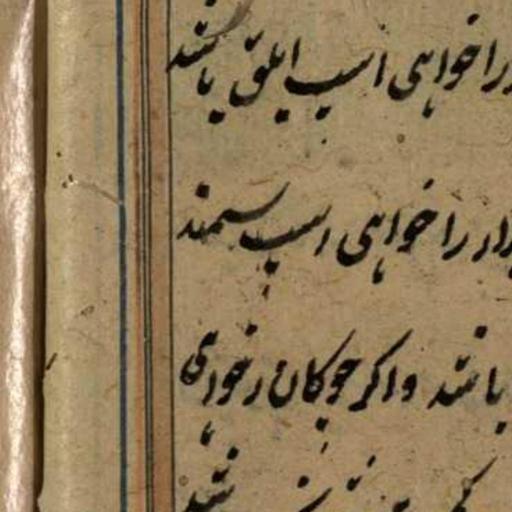 را خواهی اسپ ابلق باشد
دار را خواهی اسپ سمند
باشد و اکر چوکان زخواهی